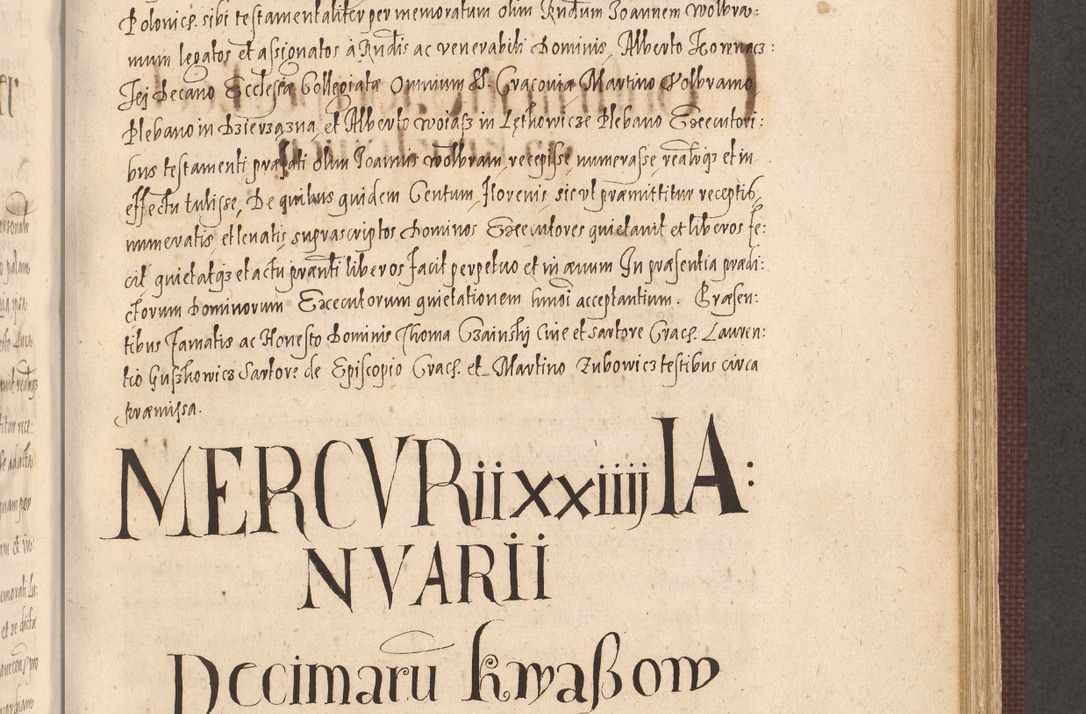 Polonicz. sibi testamentaliter per memoratum olim Rndum Joannem Wolbra:
mum legatos et assignatos à Rndis ac venerabili Dominis, Alberto
Decano Ecclesiæ Collegiatæ Omnium SS. Cracoviæ Martino Wolbramo
Plebano in Dzierzązna, et Alberto Woiasz in Lęthowicze Plebano Executori:
bus testamenti præfati olim Joannis Wolbram recepisse numerasse realitqz et in
effectu tulisse, De quibus quidem Centum, florenis, sicut præmittitur receptis,
numeratis, et levatis, suprascriptos Dominos Executores quietavit et liberos fe:
cit quietatqz et actu prænti liberos facit perpetuo et in ævum In præsentia prædi:
ctorum Dominorum Executorum quietationem hmoi acceptantium. Præsen:
tibus famatis ac Honesto Dominis Thoma Czainskij Cive et Sartore Cracz. Lauren:
tio Guszkowicz Sartore de Episcopio Cracz. et Martino Zubowicz testibus circa
præmissa.
MERCVRii xxiiiij IA:
NVARii
Decimaru kwaßow